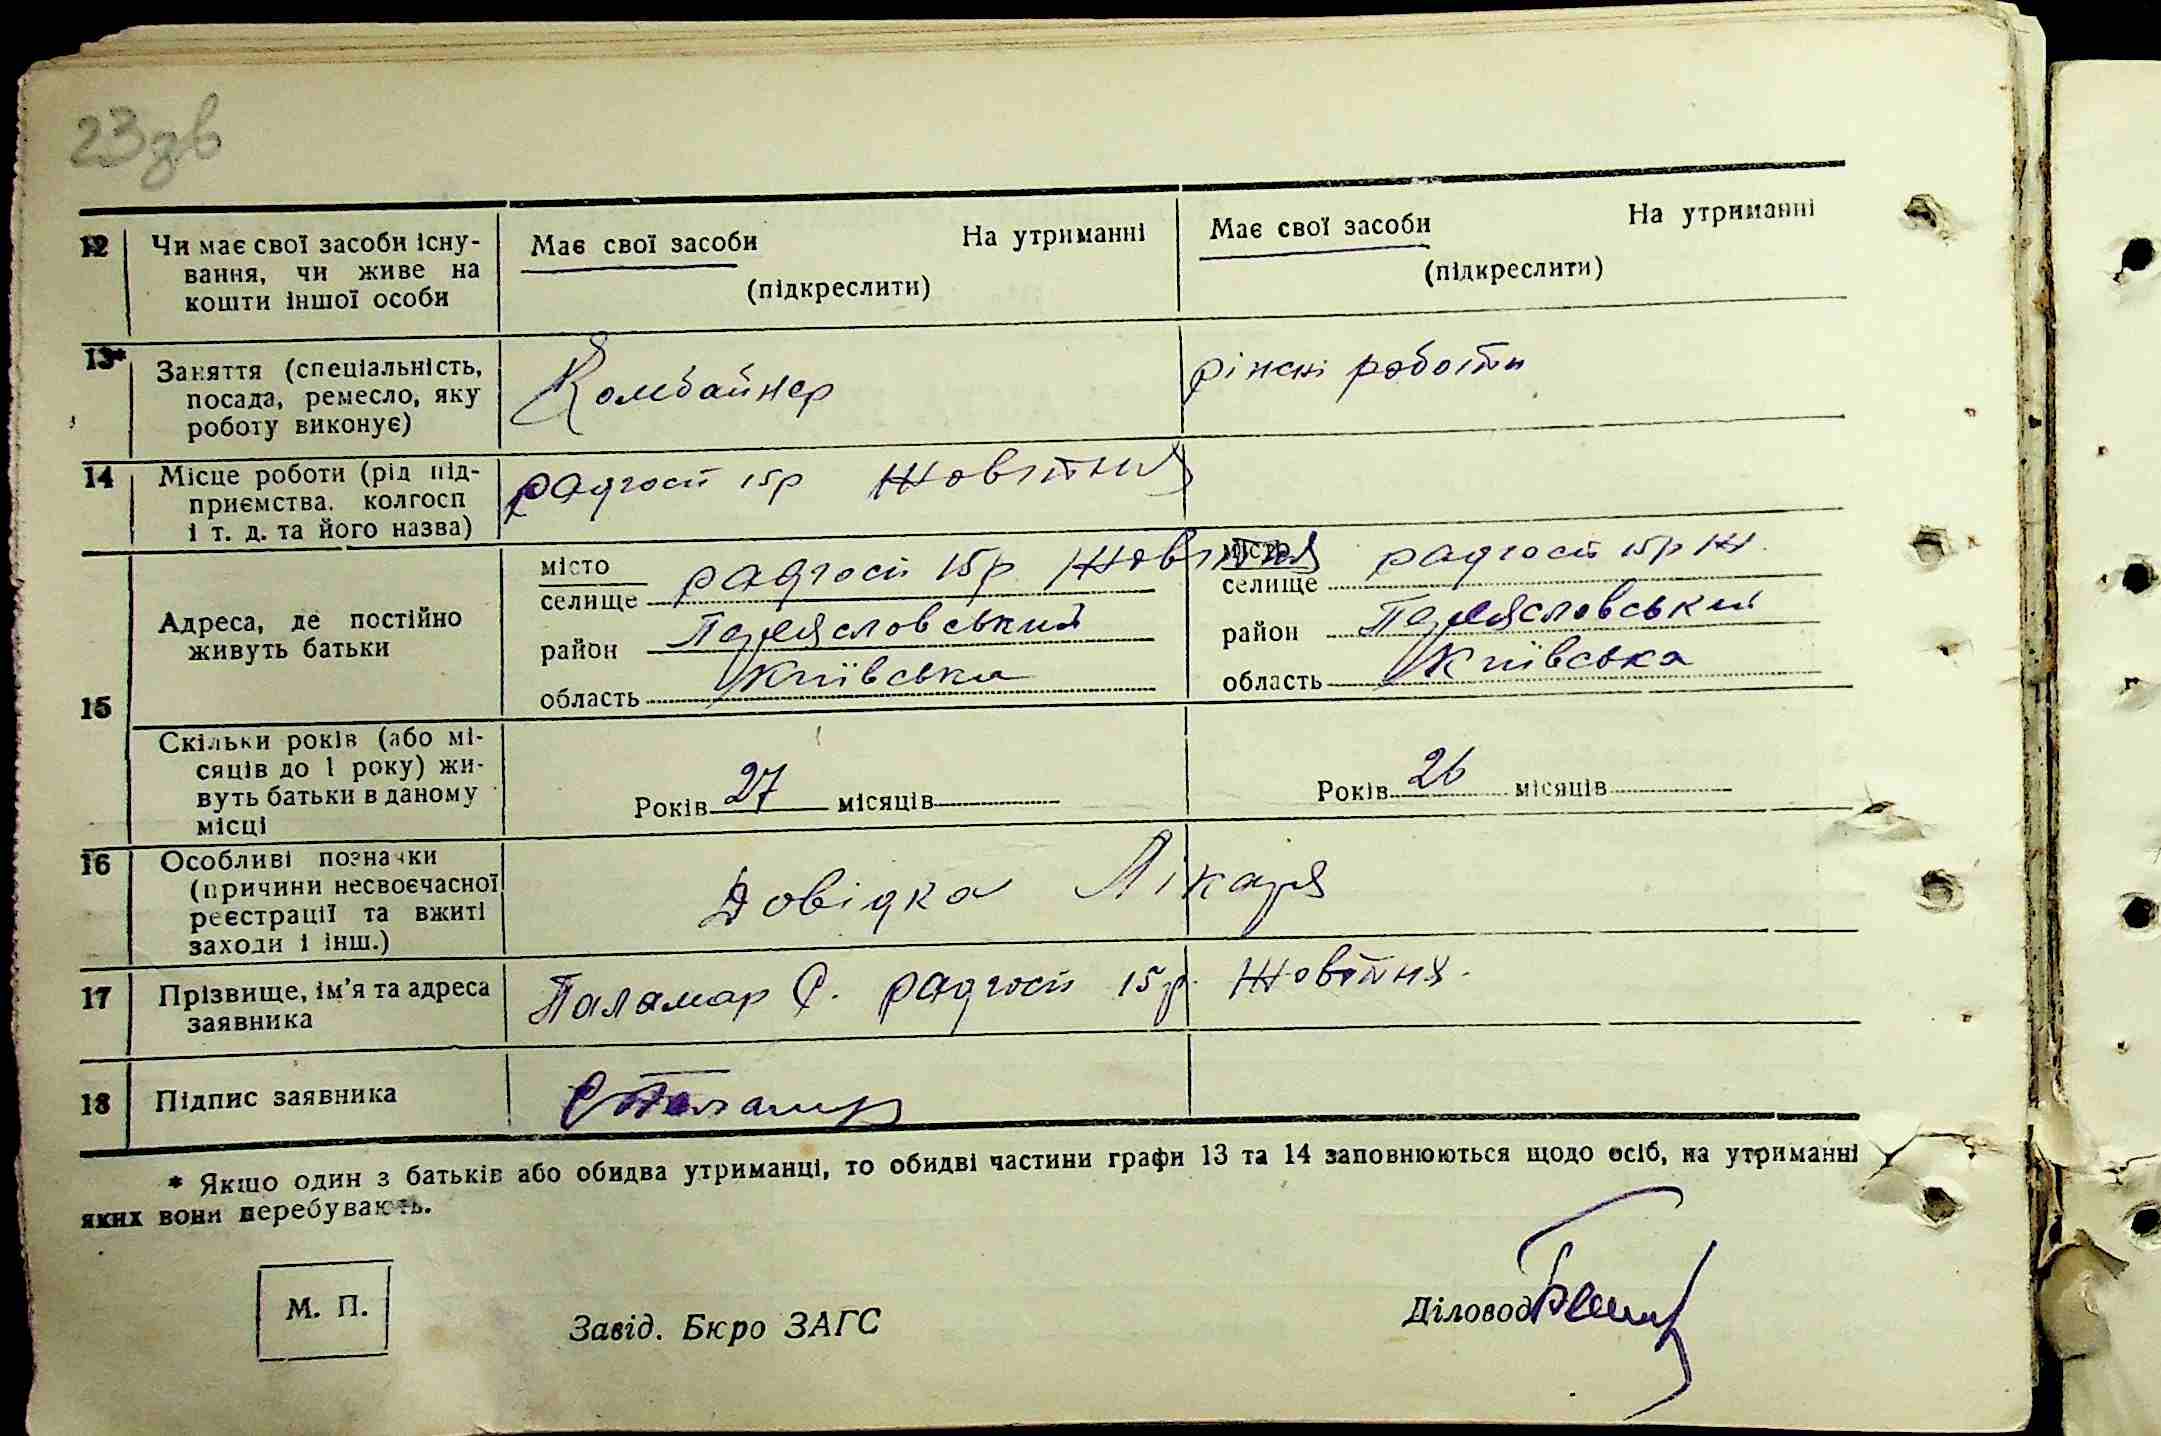 23зв
12 Чи має свої засоби існу-
вання, чи живе на
кошти іншої особи
Має свої засоби На утриманні
(підкреслити)
Має свої засоби На утриманні
(підкреслити)
13* Заняття (спеціальність,
посада, ремесло, яку
роботу виконує)
Комбайнер
ріжні роботи
14 Місце роботи (рід під-
приємства, колгосп
і т. д. та його назва)
радгосп 15р Жовтня
15 Адреса, де постійно
живуть батьки
місто
селище радгосп 15р Жовтня
район Переясловський
область Київська
місто
селище радгосп 15р Ж.
район Переясловський
область Київська
Скільки років (або мі-
сяців до 1 року) жи-
вуть батьки в даному
місці
Років 27 місяців
Років 26 місяців
16 Особливі позначки
(причини несвоєчасної
реєстрації та вжиті
заходи і інш.)
Довідка Лікаря
17 Прізвище, ім'я та адреса
заявника
Паламар С. радгосп 15р. Жовтня.
18 Підпис заявника
С Паламар
* Якщо один з батьків або обидва утриманці, то обидві частини графи 13 та 14 заповнюються щодо осіб, на утриманні
яких вони перебувають.
М. П.
Завід. Бюро ЗАГС
Діловод